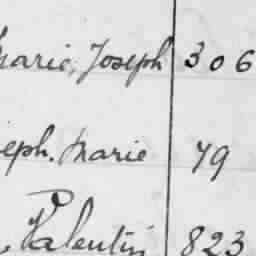 Marie, Joseph 306
eph. Marie 79
Valentin 823